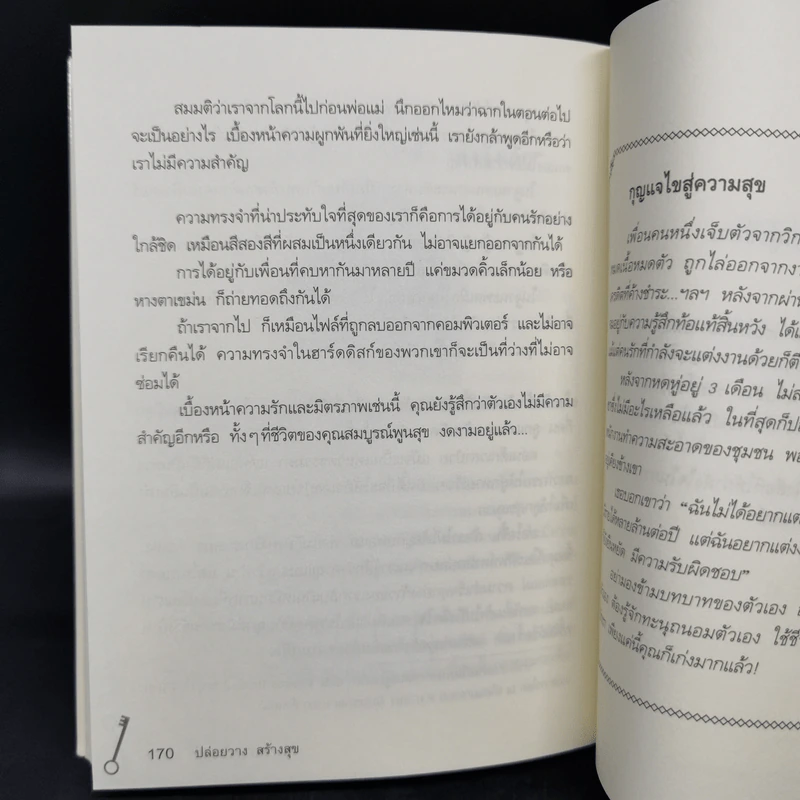 สมมติว่าเราจากโลกนี้ไปก่อนพ่อแม่ นึกออกไหมว่าฉากในตอนต่อไป
จะเป็นอย่างไร เบื้องหน้าความผูกพันที่ยิ่งใหญ่เช่นนี้ เรายังกล้าพูดอีกหรือว่า
เราไม่มีความสำคัญ
ความทรงจำที่น่าประทับใจที่สุดของเราก็คือการได้อยู่กับคนรักอย่าง
ใกล้ชิด เหมือนสีสองสีที่ผสมเป็นหนึ่งเดียวกัน ไม่อาจแยกออกจากกันได้
การได้อยู่กับเพื่อนที่คบหากันมาหลายปี แค่ขมวดคิ้วเล็กน้อย หรือ
หางตาเขม่น ก็ถ่ายทอดถึงกันได้
ถ้าเราจากไป ก็เหมือนไฟล์ที่ถูกลบออกจากคอมพิวเตอร์ และไม่อาจ
เรียกคืนได้ ความทรงจำในฮาร์ดดิสก์ของพวกเขาก็จะเป็นที่ว่างที่ไม่อาจ
ซ่อมได้
เบื้องหน้าความรักและมิตรภาพเช่นนี้ คุณยังรู้สึกว่าตัวเองไม่มีความ
สำคัญอีกหรือ ทั้งๆที่ชีวิตของคุณสมบูรณ์พูนสุข งดงามอยู่แล้ว...
170 ปล่อยวาง สร้างสุข
กุญแจไขสู่ความสุข
เพื่อนคนหนึ่งเจ็บตัวจากวิก
หมดเนื้อหมดตัว ถูกไล่ออกจากงา
ที่ค้างชำระ...ฯลฯ หลังจากผ่าน
อยู่กับความรู้สึกท้อแท้สิ้นหวัง
คนรักที่กำลังจะแต่งงานด้วยก็ตี
หลังจากหดหู่อยู่ 3 เดือน ไม่ส
ไม่มีอะไรเหลือแล้ว ในที่สุดก็
งานทำความสะอาดของชุมชน
เคียงข้างเขา
เธอบอกเขาว่า “ฉันไม่ได้อยากแต่
ได้หลายล้านต่อปี แต่ฉันอยากแต่ง
มีความรับผิดชอบ”
อย่ามองข้ามบทบาทของตัวเอง
ต้องรู้จักทะนุถนอมตัวเอง ใช้ชี
เพียงแค่นี้คุณก็เก่งมากแล้ว!